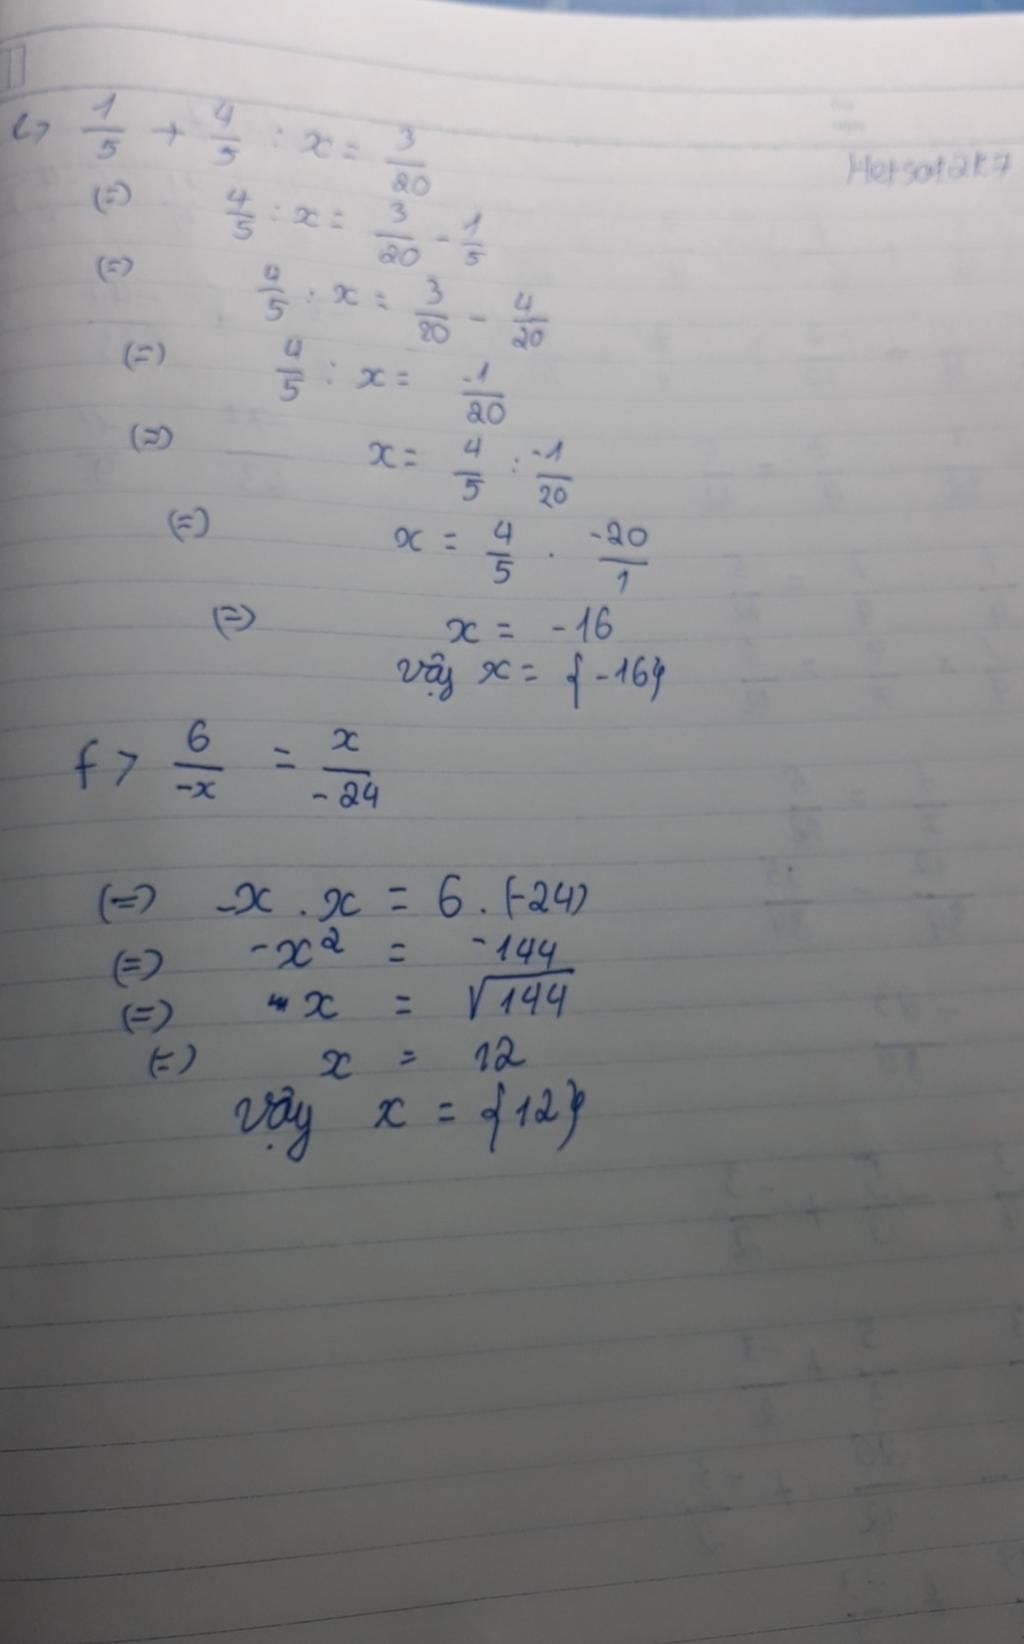 e> 1/5 + 4/5 : x = 3/20
(=) 4/5 : x = 3/20 - 1/5
(=) 4/5 : x = 3/20 - 4/20
(=) 4/5 : x = -1/20
(=) x = 4/5 : -1/20
(=) x = 4/5 . -20/1
(=) x = -16
vậy x = {-16}
f> 6/-x = x/-24
(=) -x . x = 6 . (-24)
(=) -x² = -144
(=) x = √144
(=) x = 12
vậy x = {12}